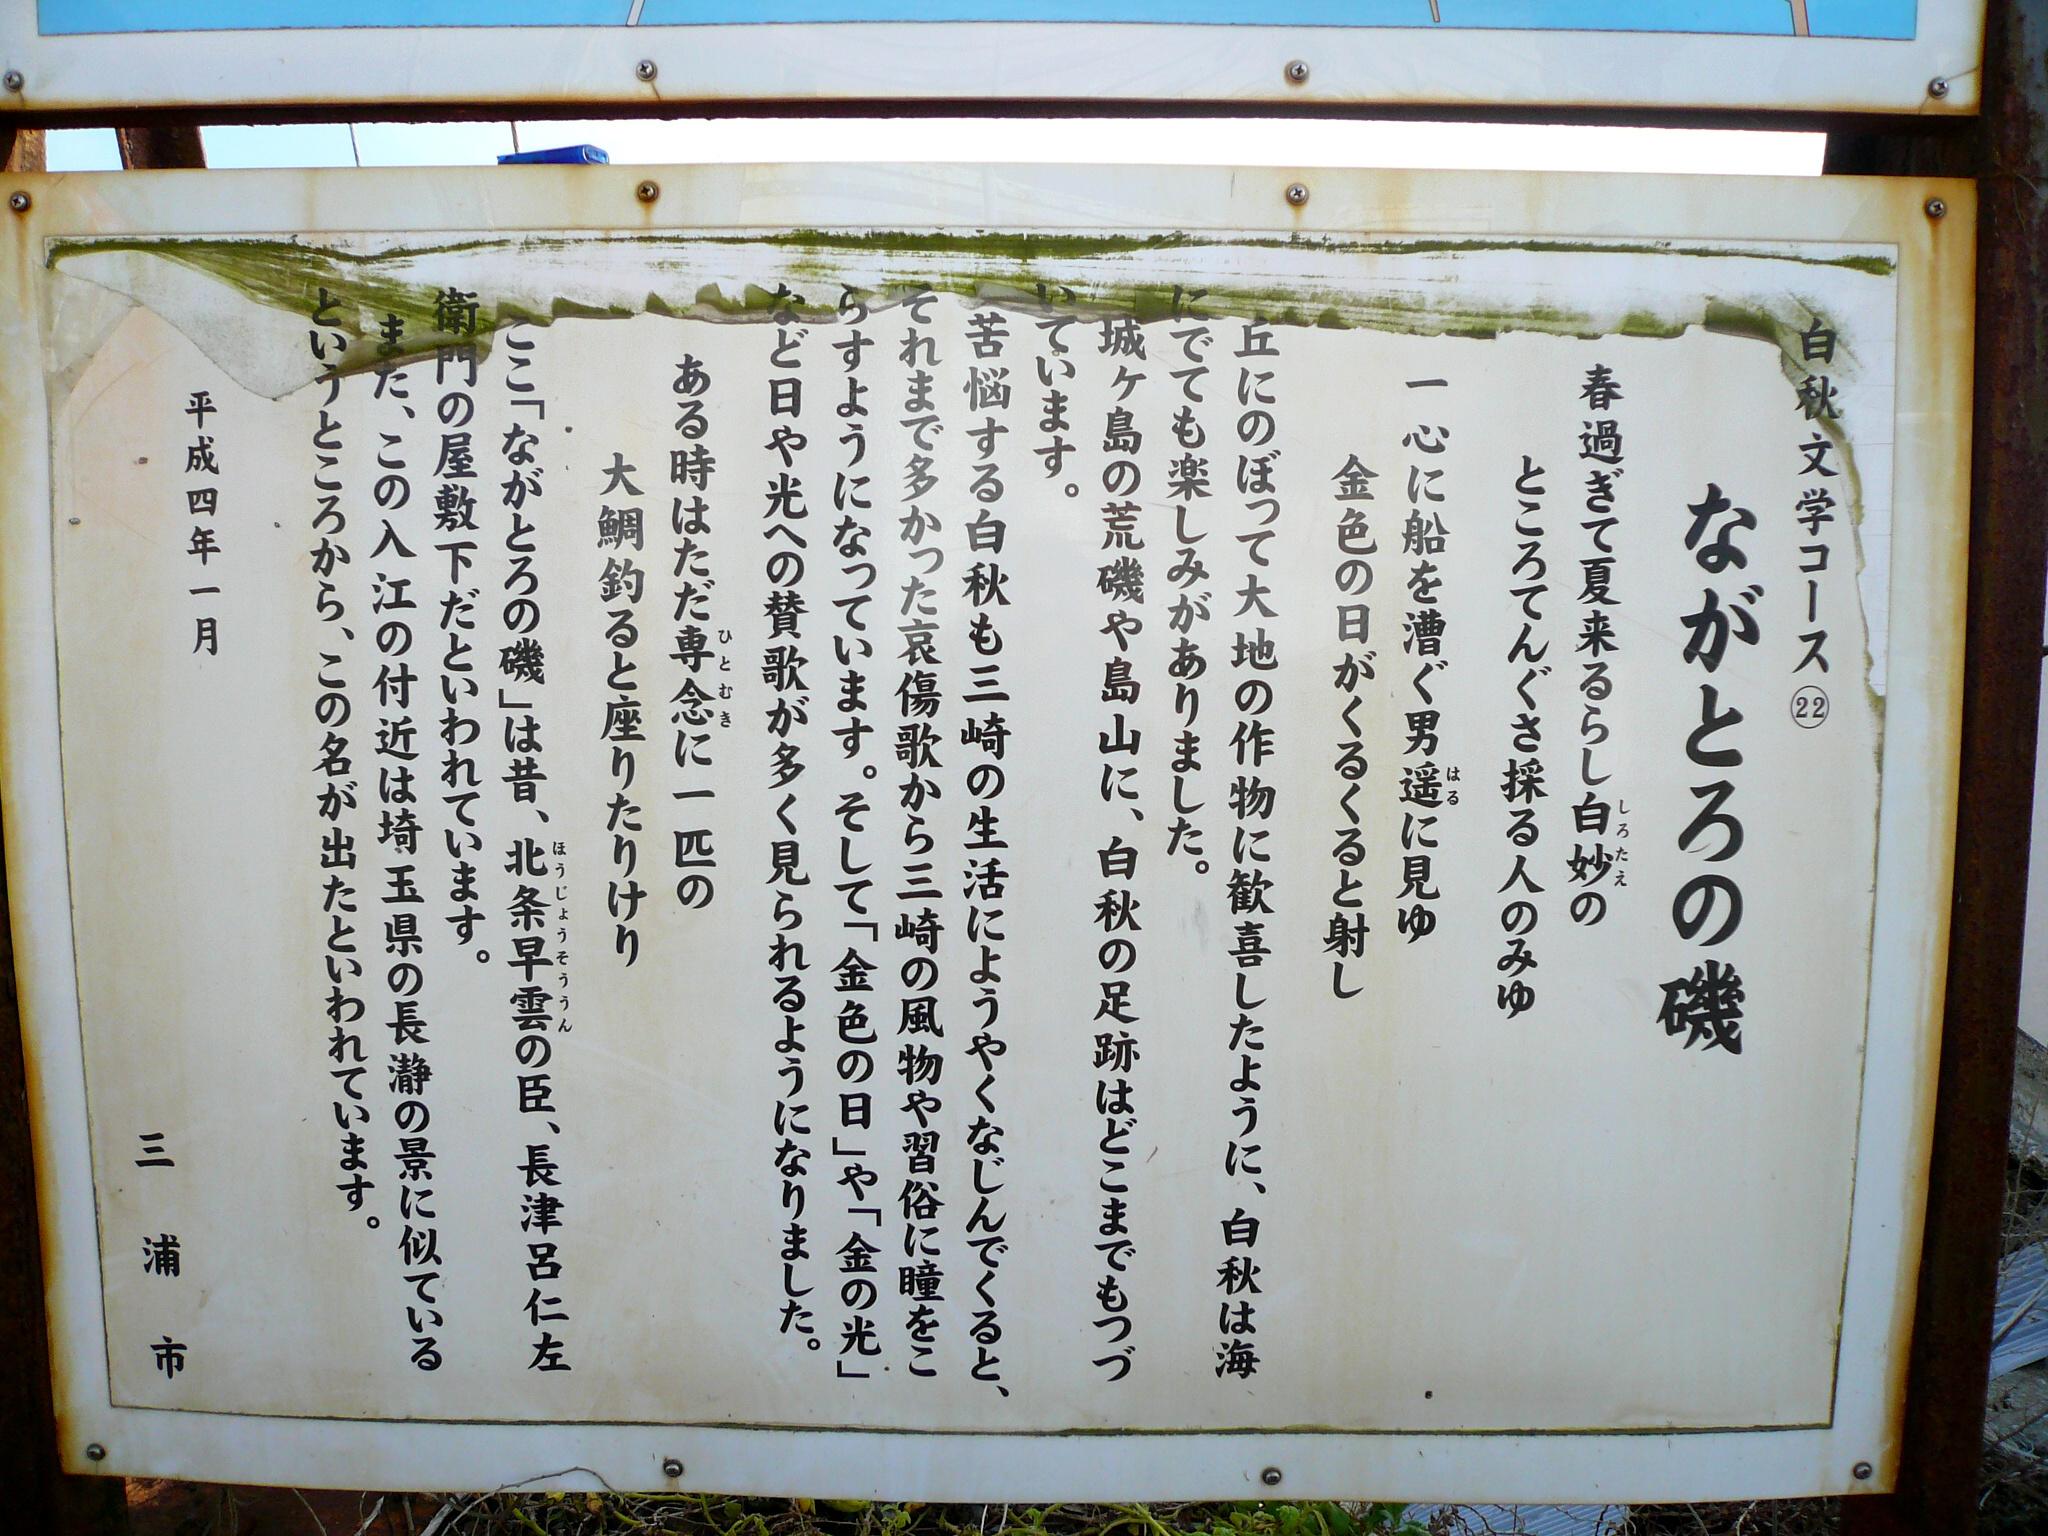 白秋文学コース㉒
ながとろの磯
春過ぎて夏来るらし白妙の
しろたえ
ところてんぐさ採る人のみゆ
一心に船を漕ぐ男遥に見ゆ
はる
金色の日がくるくると射し
丘にのぼって大地の作物に歓喜したように、白秋は海
にでても楽しみがありました。
城ヶ島の荒磯や島山に、白秋の足跡はどこまでもつづ
いています。
苦悩する白秋も三崎の生活にようやくなじんでくると、
それまで多かった哀傷歌から三崎の風物や習俗に瞳をこ
らすようになっています。そして「金色の日」や「金の光」
など日や光への賛歌が多く見られるようになりました。
ある時はただ専念に一匹の
ひとむき
大鯛釣ると座りたりけり
ここ「ながとろの磯」は昔、北条早雲の臣、長津呂仁左
ほうじょうそううん
衛門の屋敷下だといわれています。
また、この入江の付近は埼玉県の長瀞の景に似ている
というところから、この名が出たといわれています。
平成四年一月
三浦市